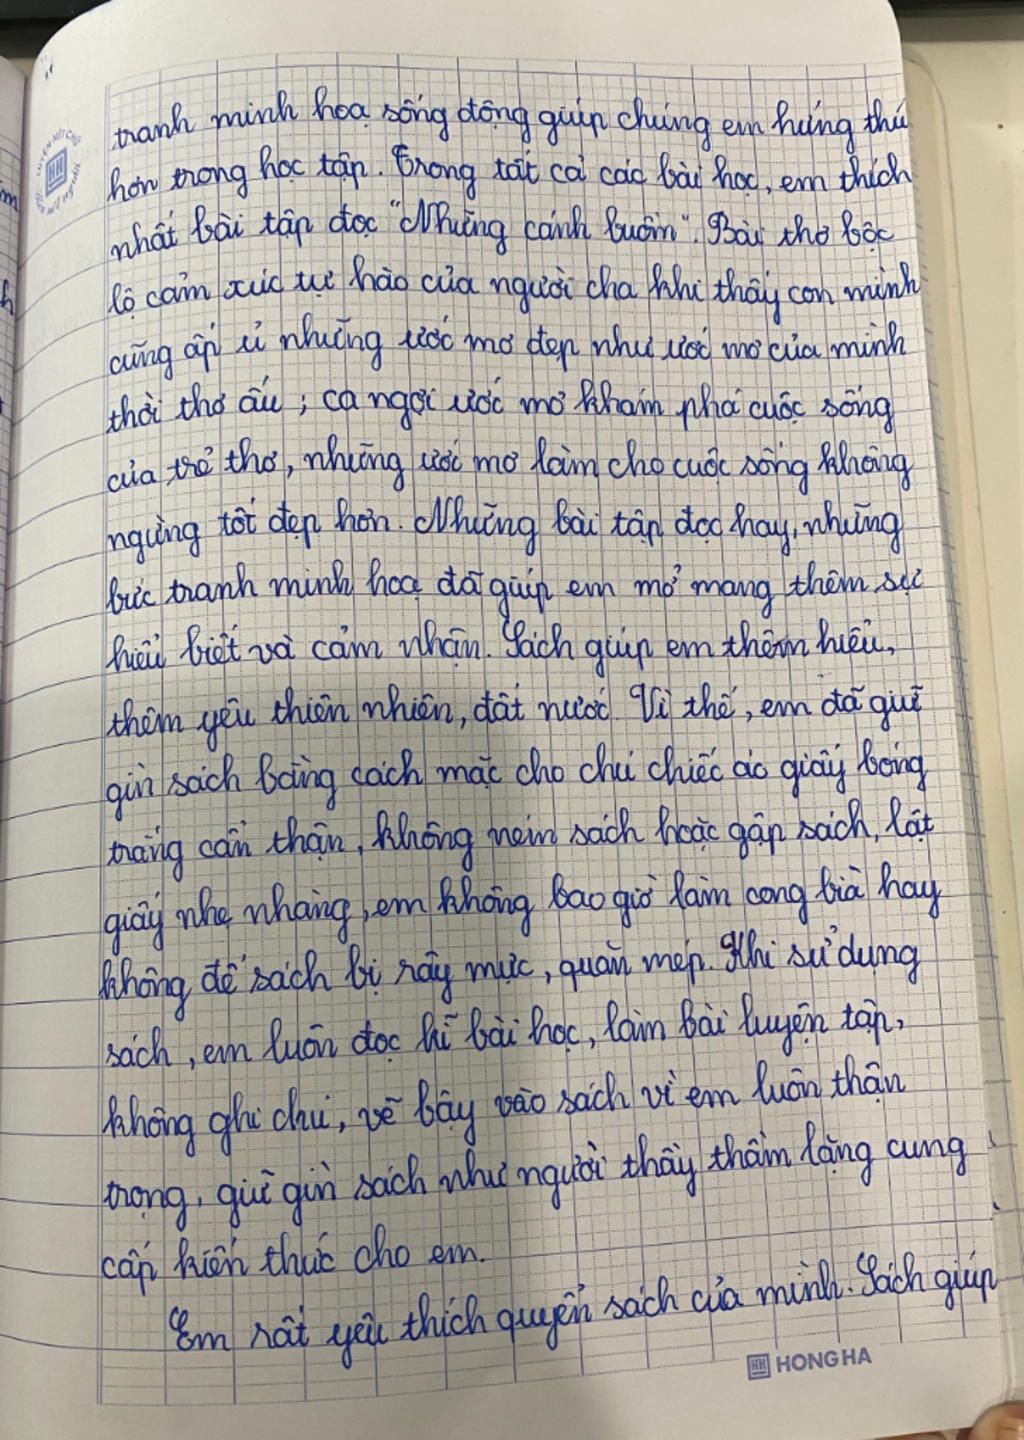 tranh minh hoạ sống động giúp chúng em hứng thú
hơn trong học tập. Trong tất cả các bài học, em thích
nhất bài tập đọc "Những cánh buồm". Bài thơ bộc
lộ cảm xúc tự hào của người cha khi thấy con mình
cũng ấp ủ những ước mơ đẹp như ước mơ của mình
thời thơ ấu ; ca ngợi ước mơ khám phá cuộc sống
của trẻ thơ, những ước mơ làm cho cuộc sống không
ngừng tốt đẹp hơn. Những bài tập đọc hay, những
bức tranh minh hoạ đã giúp em mở mang thêm sự
hiểu biết và cảm nhận. Sách giúp em thêm hiểu,
thêm yêu thiên nhiên, đất nước. Vì thế, em đã giữ
gìn sách bằng cách mặc cho chú chiếc áo giấy bóng
trắng cẩn thận, không ném sách hoặc gập sách, lật
giấy nhẹ nhàng, em không bao giờ làm cong bìa hay
không để sách bị rây mực, quăn mép. Khi sử dụng
sách, em luôn đọc kĩ bài học, làm bài luyện tập,
không ghi chú, vẽ bậy vào sách vì em luôn thận
trọng, giữ gìn sách như người thầy thầm lặng cung
cấp kiến thức cho em.
Em rất yêu thích quyển sách của mình. Sách giúp
HONG HA